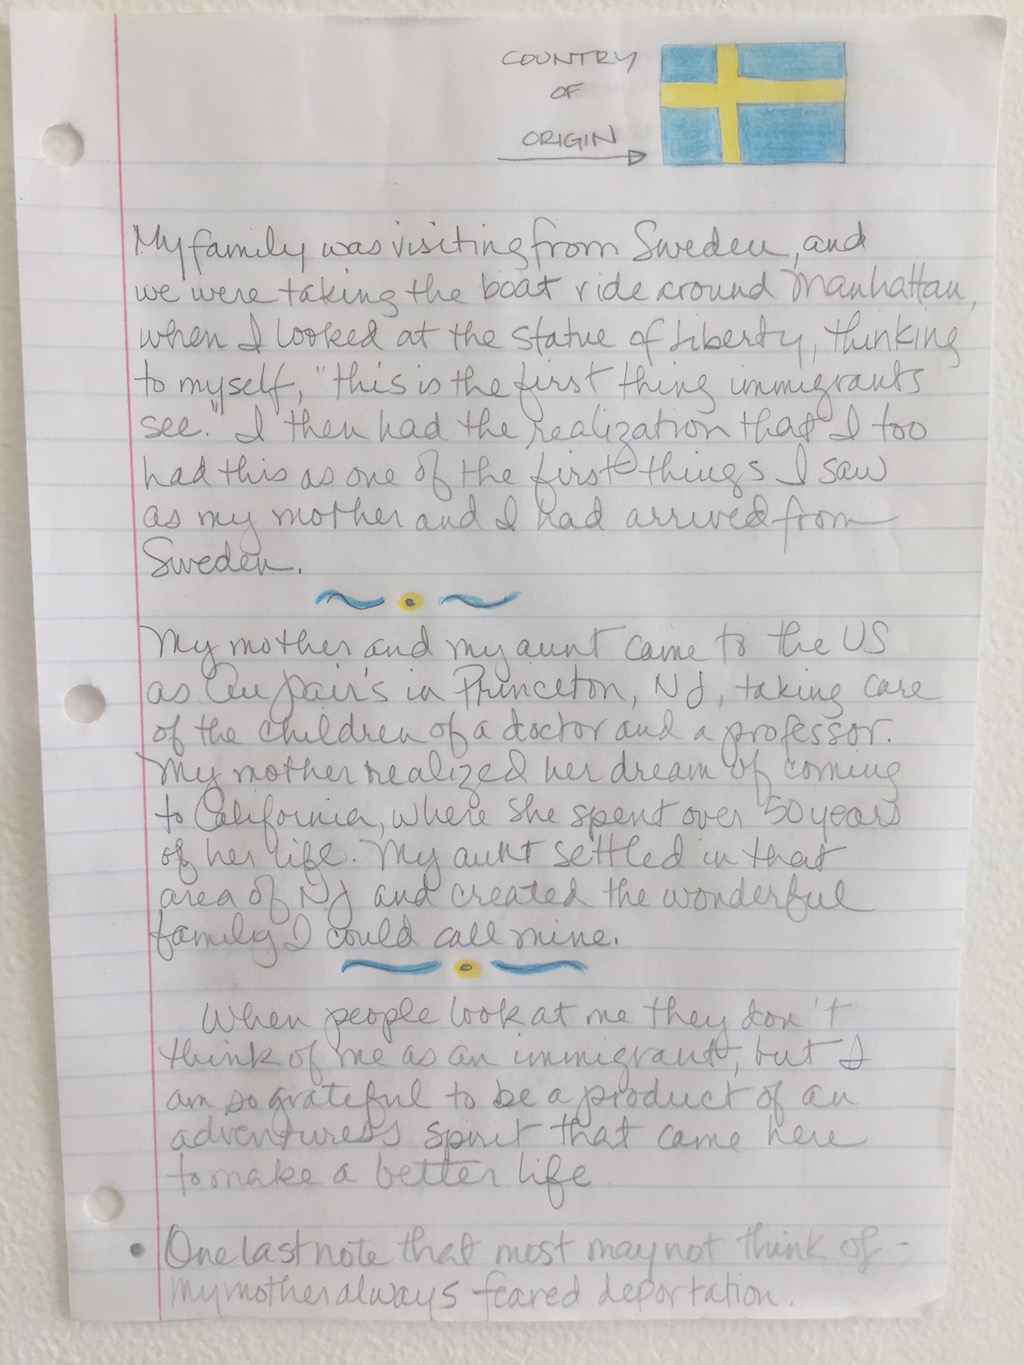 COUNTRY
OF
ORIGIN
My family was visiting from Sweden, and
we were taking the boat ride around Manhattan,
when I looked at the statue of Liberty, thinking
to myself, "this is the first thing immigrants
see." I then had the realization that I too
had this as one of the first things I saw
as my mother and I had arrived from
Sweden.
My mother and my aunt came to the US
as Au pair's in Princeton, NJ, taking care
of the children of a doctor and a professor.
My mother realized her dream of coming
to California, where she spent over 50 years
of her life. My aunt settled in that
area of NJ and created the wonderful
family I could call mine.
When people look at me they don't
think of me as an immigrant, but I
am so grateful to be a product of an
adventuress spirit that came here
to make a better life
• One last note that most may not think of -
my mother always feared deportation.